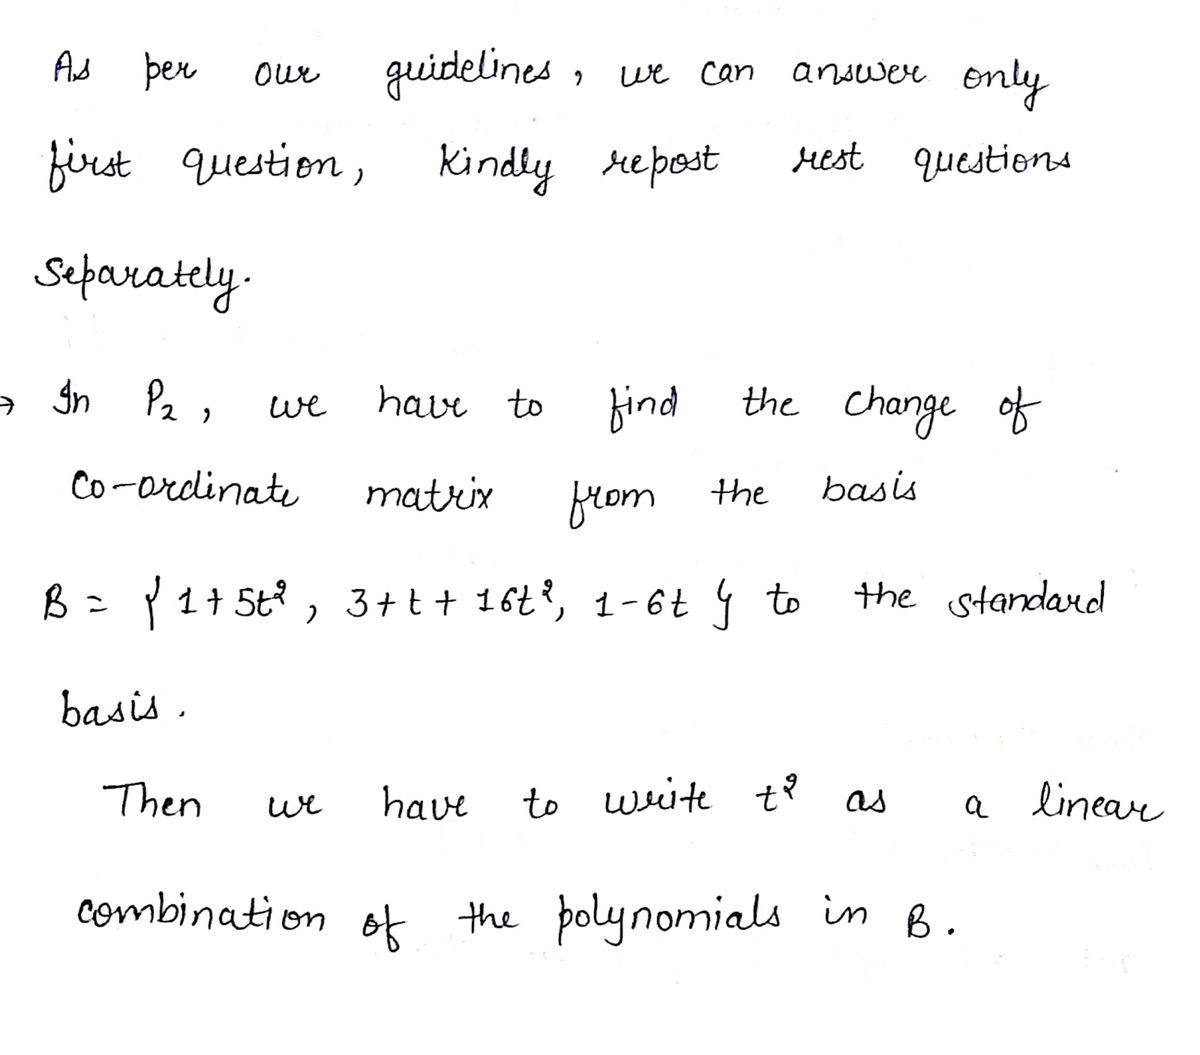 As per our guidelines, we can answer only
first question, kindly repost rest questions
Separately.
→ In P₂, we have to find the change of
Co-ordinate matrix from the basis
B = { 1+5t², 3+t+16t², 1-6t } to the standard
basis.
Then we have to write t² as a linear
combination of the polynomials in B.